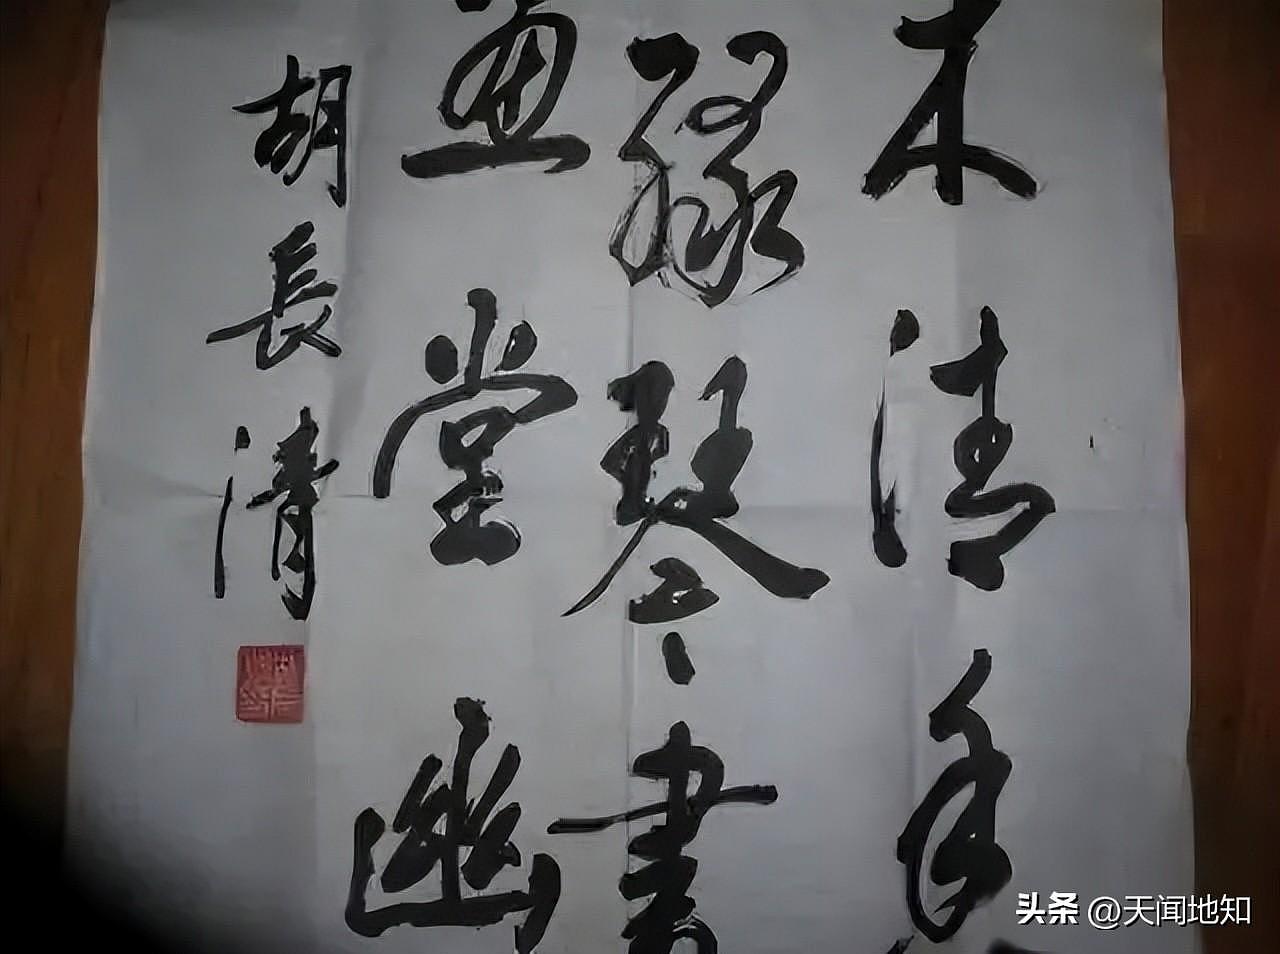 木清
琴書
畫堂幽
胡長清
头条 @天闻地知